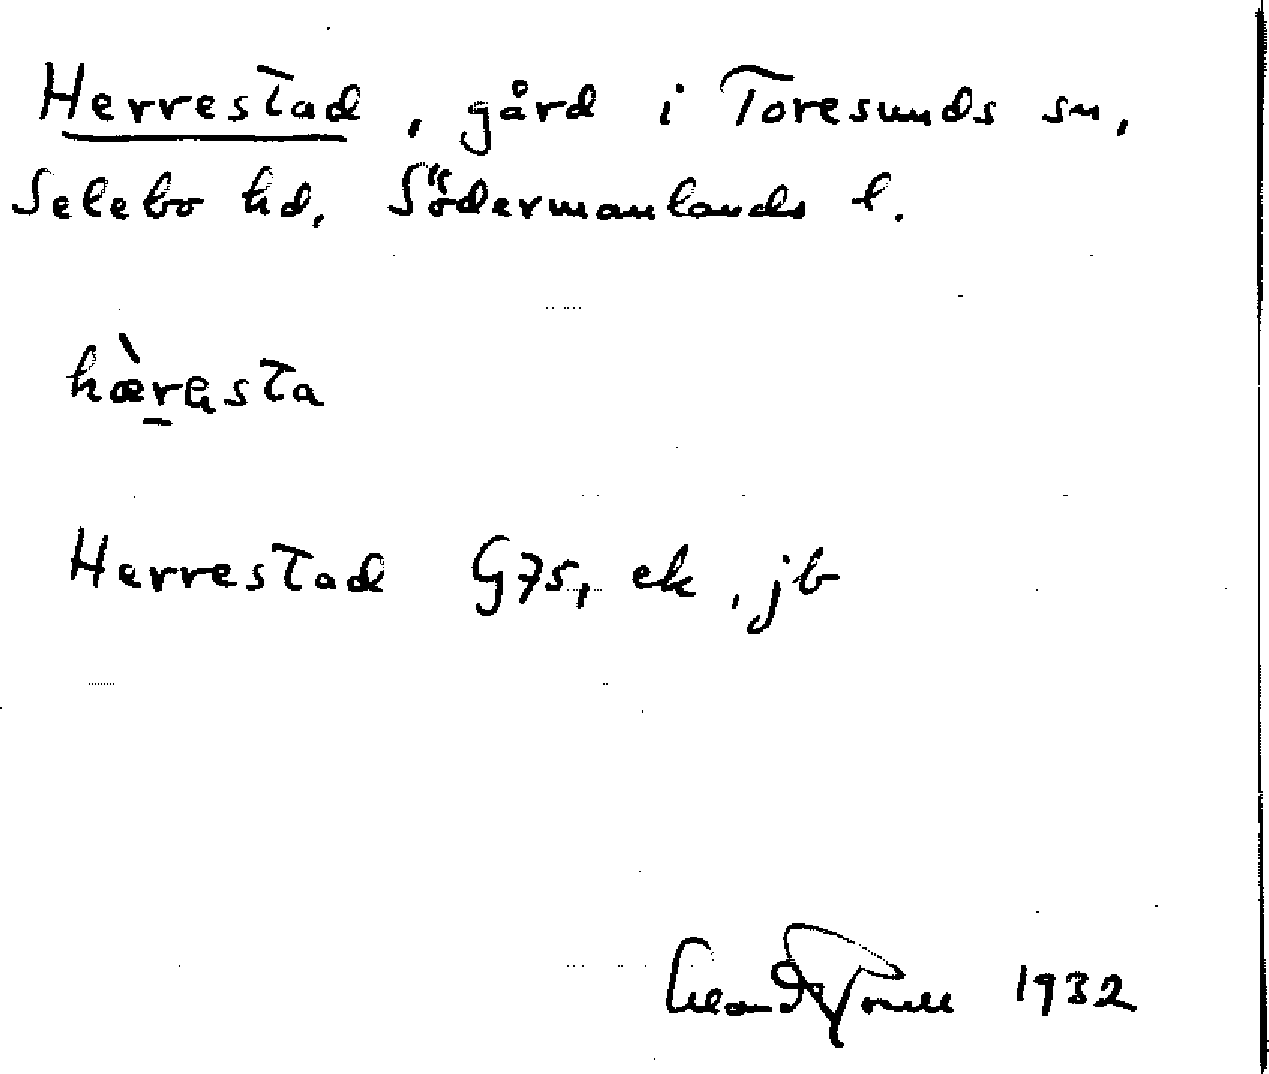 Herrestad, gård i Toresunds sn,
Selebo hd, Södermanlands l.
hæ̀resta
Herrestad G75, ek, jb
1932